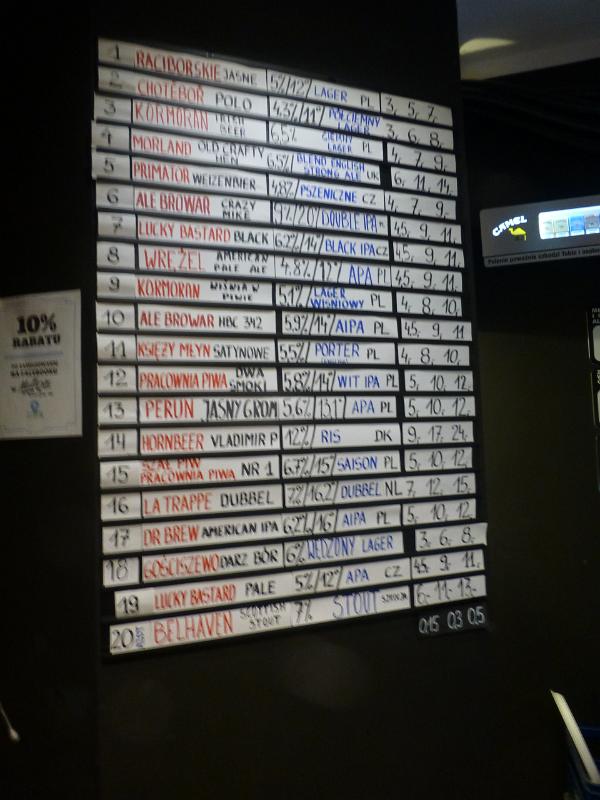 1 RACIBORSKIE JASNE 5%/12° LAGER PL 3, 5, 7,
2 CHOTĚBOŘ POLO 4,3%/11° PÓŁCIEMNY LAGER 3, 6, 8,
3 KORMORAN IRISH BEER 6,5% CIEMNY LAGER PL 4, 7, 9,
4 MORLAND OLD CRAFTY HEN 6,5% BLEND ENGLISH STRONG ALE UK 6, 11, 14,
5 PRIMATOR WEIZENBIER 4,8%/PSZENICZNE CZ 4, 7, 9,
6 ALE BROWAR CRAZY MIKE 9%/20°/DOUBLE IPA 4,5, 9, 11,
7 LUCKY BASTARD BLACK 6,2%/14°/BLACK IPA CZ 4,5, 9, 11,
8 WRĘŻEL AMERICAN PALE ALE 4,8%/12°/APA PL 4,5, 9, 11,
9 KORMORAN WIŚNIA W PIWIE 5,1%/LAGER WIŚNIOWY PL 4, 8, 10,
10 ALE BROWAR HBC 342 5,9%/14°/AIPA PL 4,5, 9, 11
11 KSIĘŻY MŁYN SATYNOWE 5,5%/PORTER PL 4, 8, 10,
12 PRACOWNIA PIWA DWA SMOKI 5,8%/14° WIT IPA PL 5, 10, 12,
13 PERUN JASNY GROM 5,6%/13,1°/APA PL 5, 10, 12,
14 HORNBEER VLADIMIR P 12%/RIS DK 9, 17, 24,
15 SZAŁ PIW PRACOWNIA PIWA NR 1 6,7%/15°/SAISON PL 5, 10, 12,
16 LA TRAPPE DUBBEL 7%/16,2°/DUBBEL NL 7, 12, 15,
17 DR BREW AMERICAN IPA 6,2%/16°/AIPA PL 5, 10, 12,
18 GOŚCISZEWO DARZ BÓR 6%/WĘDZONY LAGER 3, 6, 8,
19 LUCKY BASTARD PALE 5%/12°/APA CZ 4,5, 9, 11,
20 BELHAVEN SCOTTISH STOUT 7% STOUT SZKOCJA 6,- 11,- 13,-
0,15 0,3 0,5
10%
RABATU
CAMEL